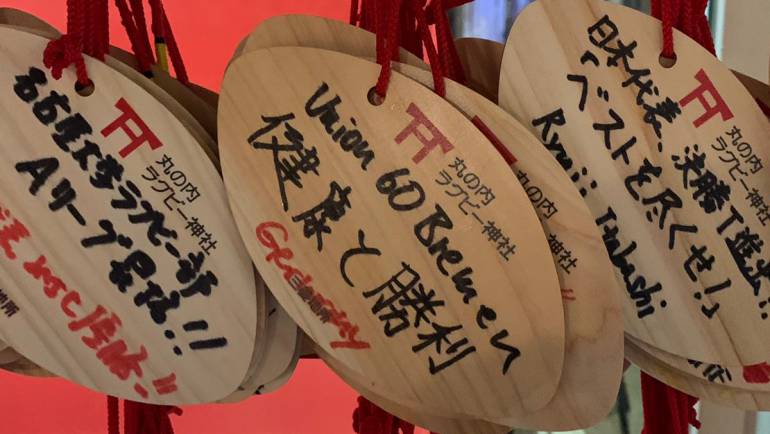 名古屋大学ラグビー部
Aリーグ昇格!!
丸の内
ラグビー神社
Union 60 Bremen
健康と勝利
Germany
丸の内
ラグビー神社
日本代表、決勝T進出!!
「ベストを尽くせ!」
Ryuji Itabashi
丸の内
ラグビー神社